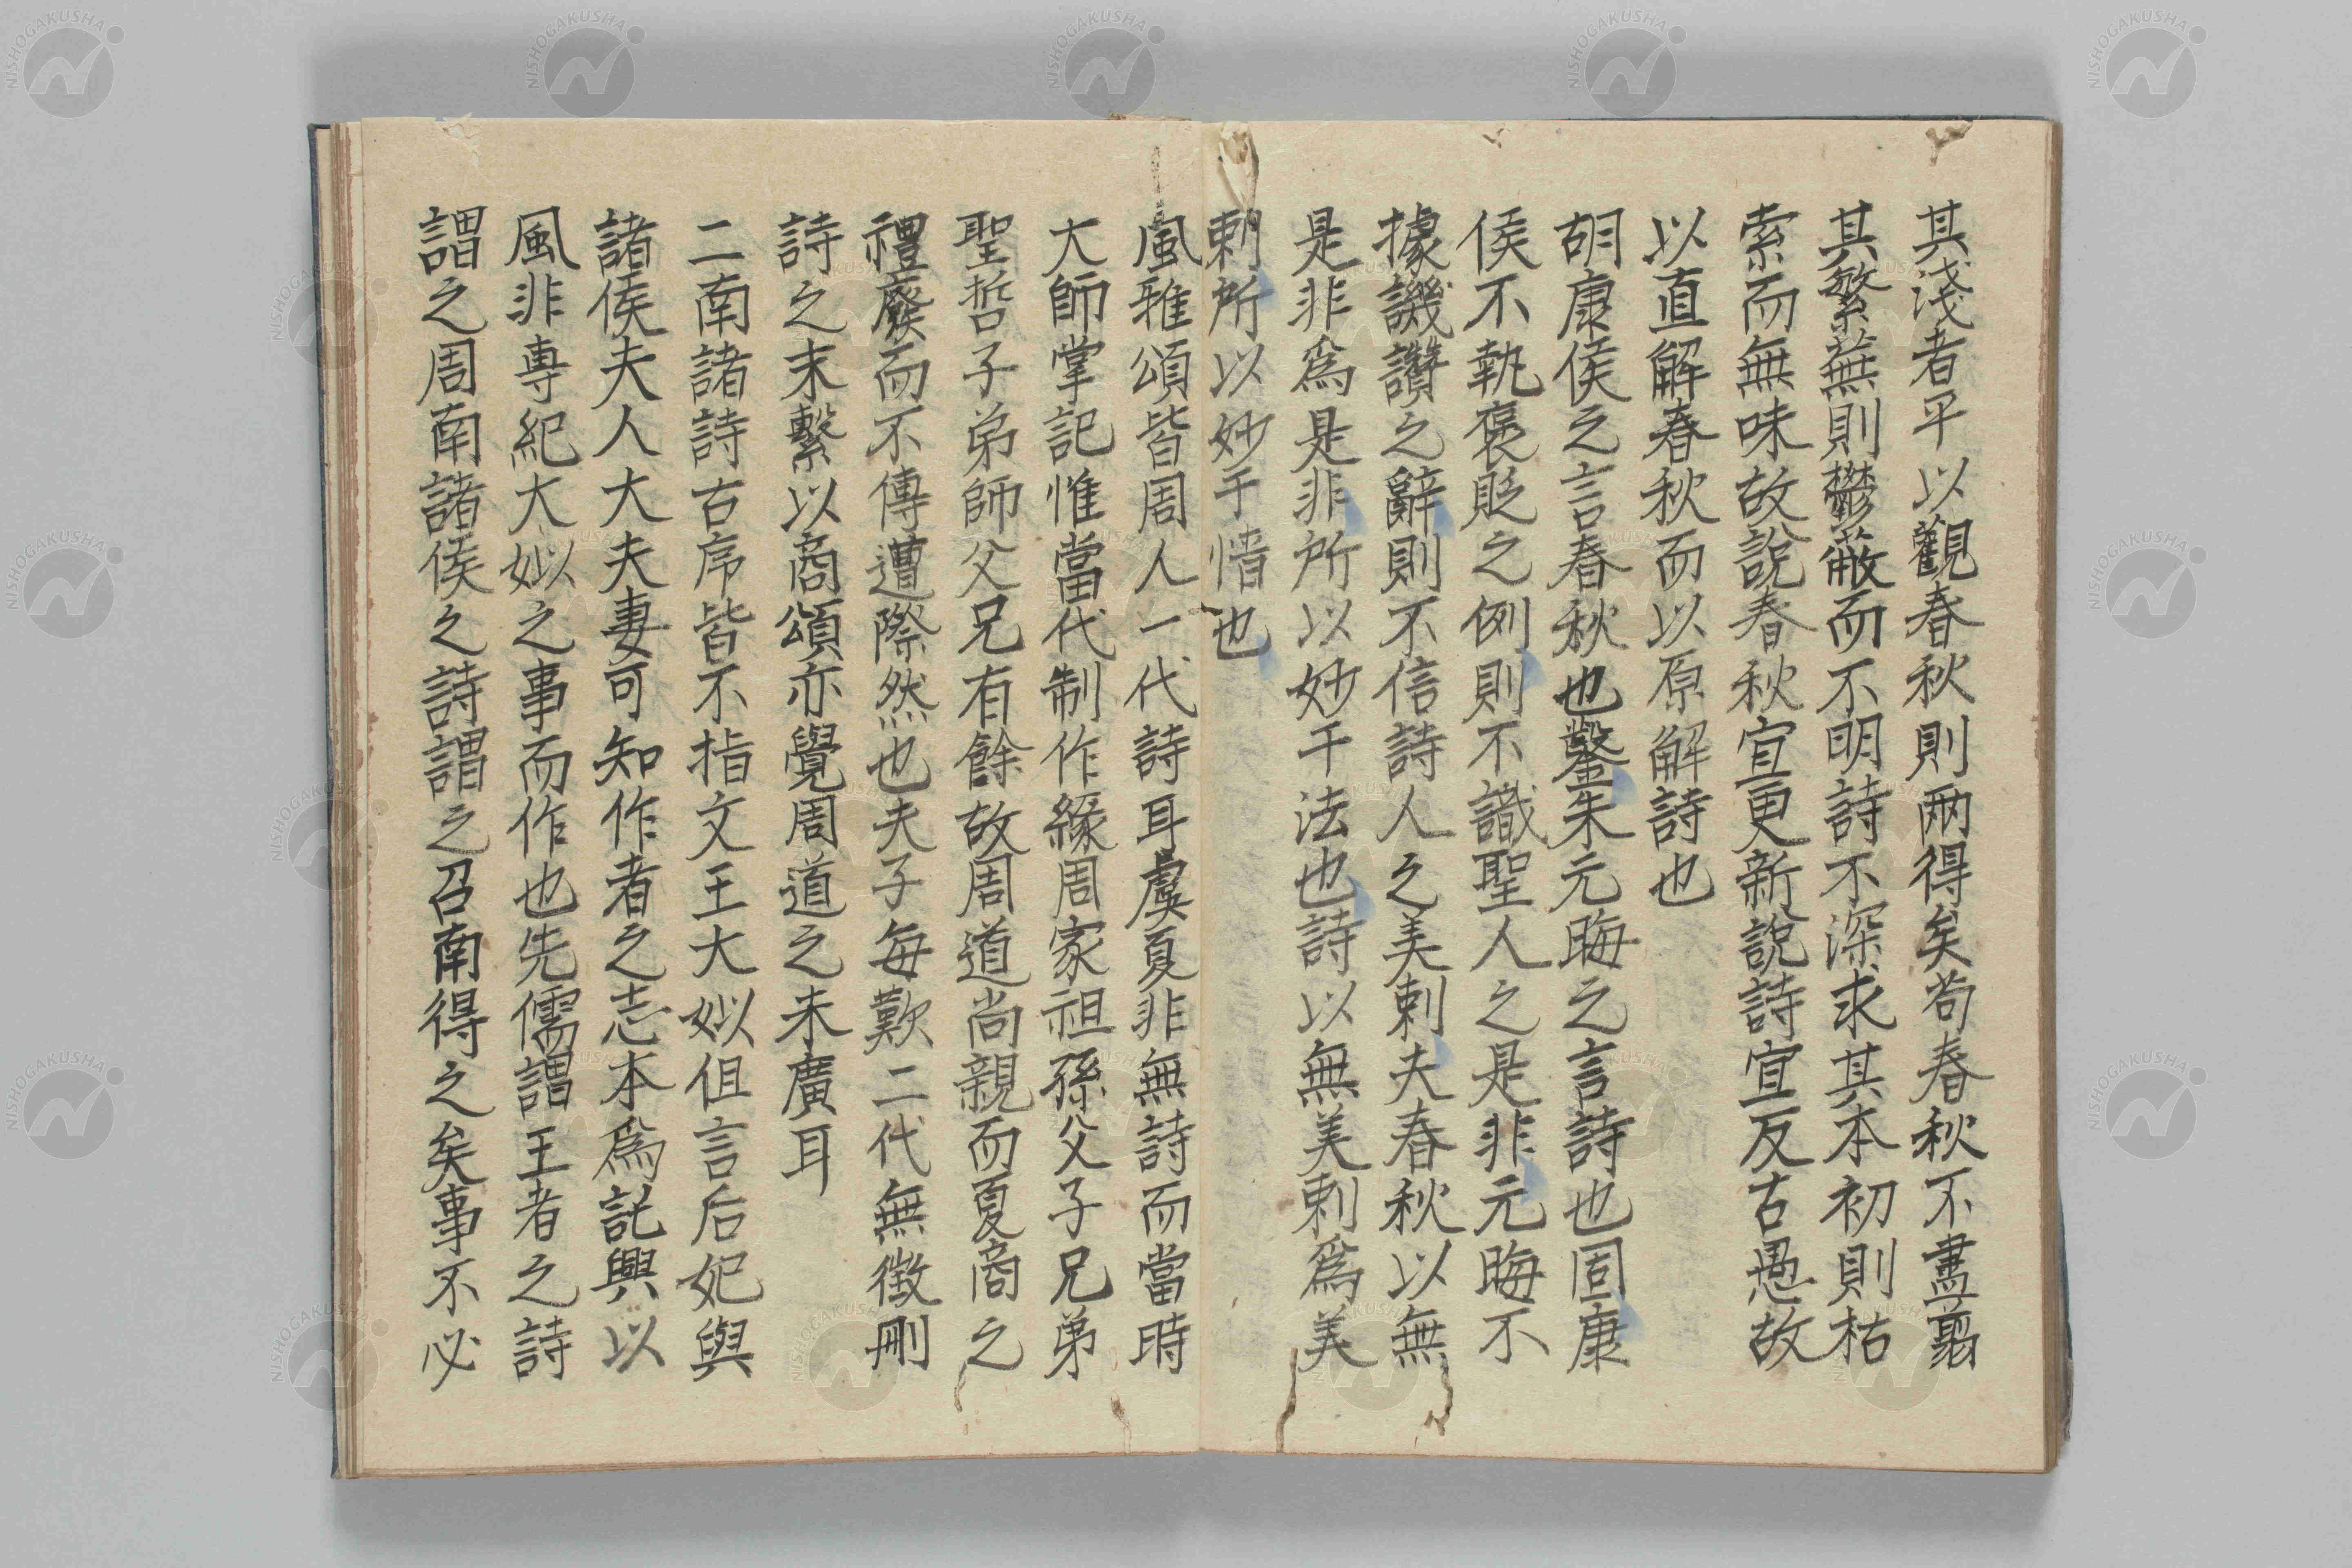 其淺者平以觀春秋則两得矣茍春秋不盡翦
其繁蕪則鬱蔽而不明詩不深求其本初則枯
索而無味故說春秋宜更新說詩宜反古愚故
以直解春秋而以原解詩也
胡康侯之言春秋也鑿朱元晦之言詩也固康
侯不執褒貶之例則不識聖人之是非元晦不
據譏讚之辭則不信詩人之美刺夫春秋以無
是非為是非所以妙于法也詩以無美刺為美
刺所以妙于情也
風雅頌皆周人一代詩耳虞夏非無詩而當時
大師掌記惟當代制作緣周家祖孫父子兄弟
聖哲子弟師父兄有餘故周道尚親而夏商之
禮廢而不傳遭際然也夫子每歎二代無徵刪
詩之末繫以商頌亦覺周道之未廣耳
二南諸詩古序皆不指文王大姒但言后妃與
諸侯夫人大夫妻可知作者之志本為託興以
風非專紀大姒之事而作也先儒謂王者之詩
謂之周南諸侯之詩謂之召南得之矣事不必
NISHOGAKUSHA